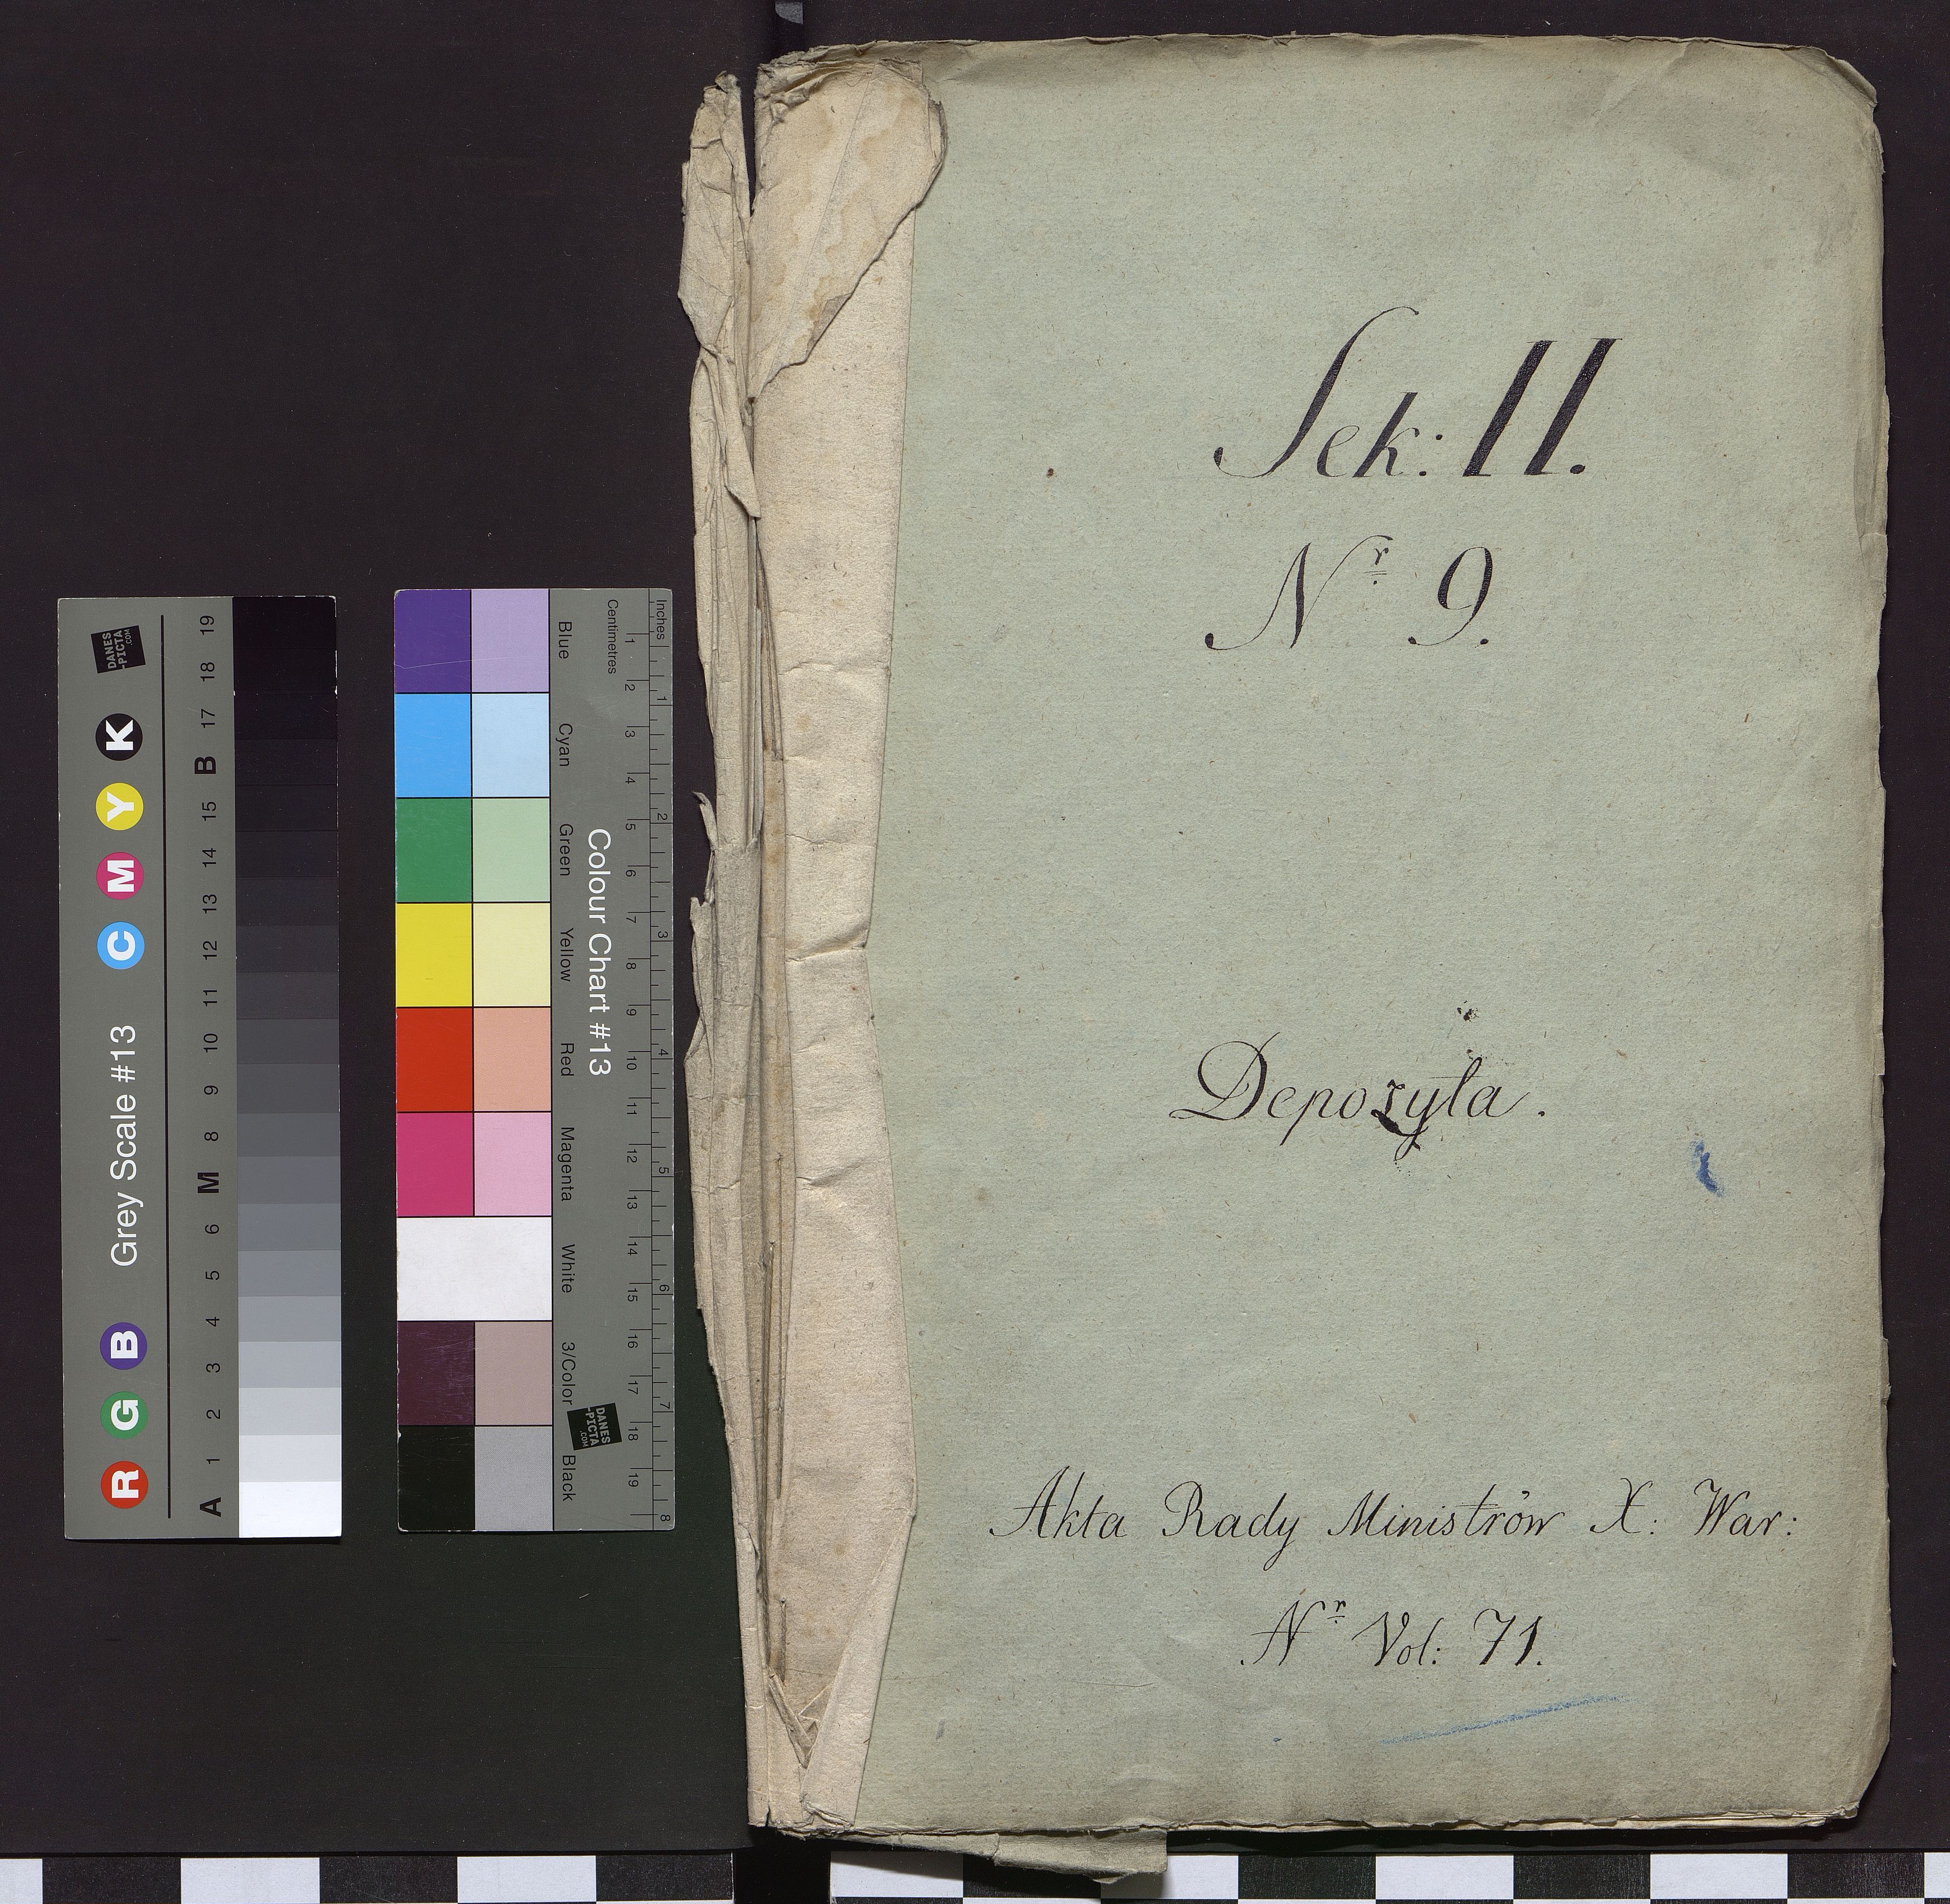 Sek: II.
Nr 9.
Depozyta.
Akta Rady Ministrów X: War:
Nr Vol: 71.
Grey Scale #13
R G B C M Y K
A 1 2 3 4 5 6 M 8 9 10 11 12 13 14 15 B 17 18 19
DANES
-PICTA
.COM
Colour Chart #13
Blue Cyan Green Yellow Red Magenta White 3/Color Black
Centimetres
1 2 3 4 5 6 7 8 9 10 11 12 13 14 15 16 17 18 19
Inches
1 2 3 4 5 6 7 8
DANES
-PICTA
.COM